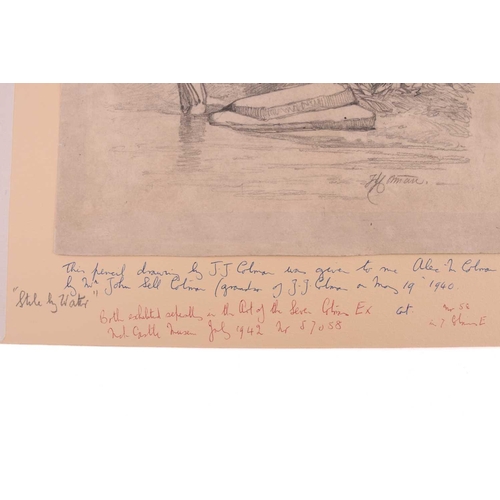 JJ Cotman.
This pencil drawing by J.J Cotman was given to me Alec M Cotman
by Mr John Sell Cotman (grandson of J.J Cotman on May 19" 1940.
"Stile by Water"
Both exhibited separately in the Art of the Seven Cotmans Ex at
Castle Museum July 1942 Nr 57 & 58